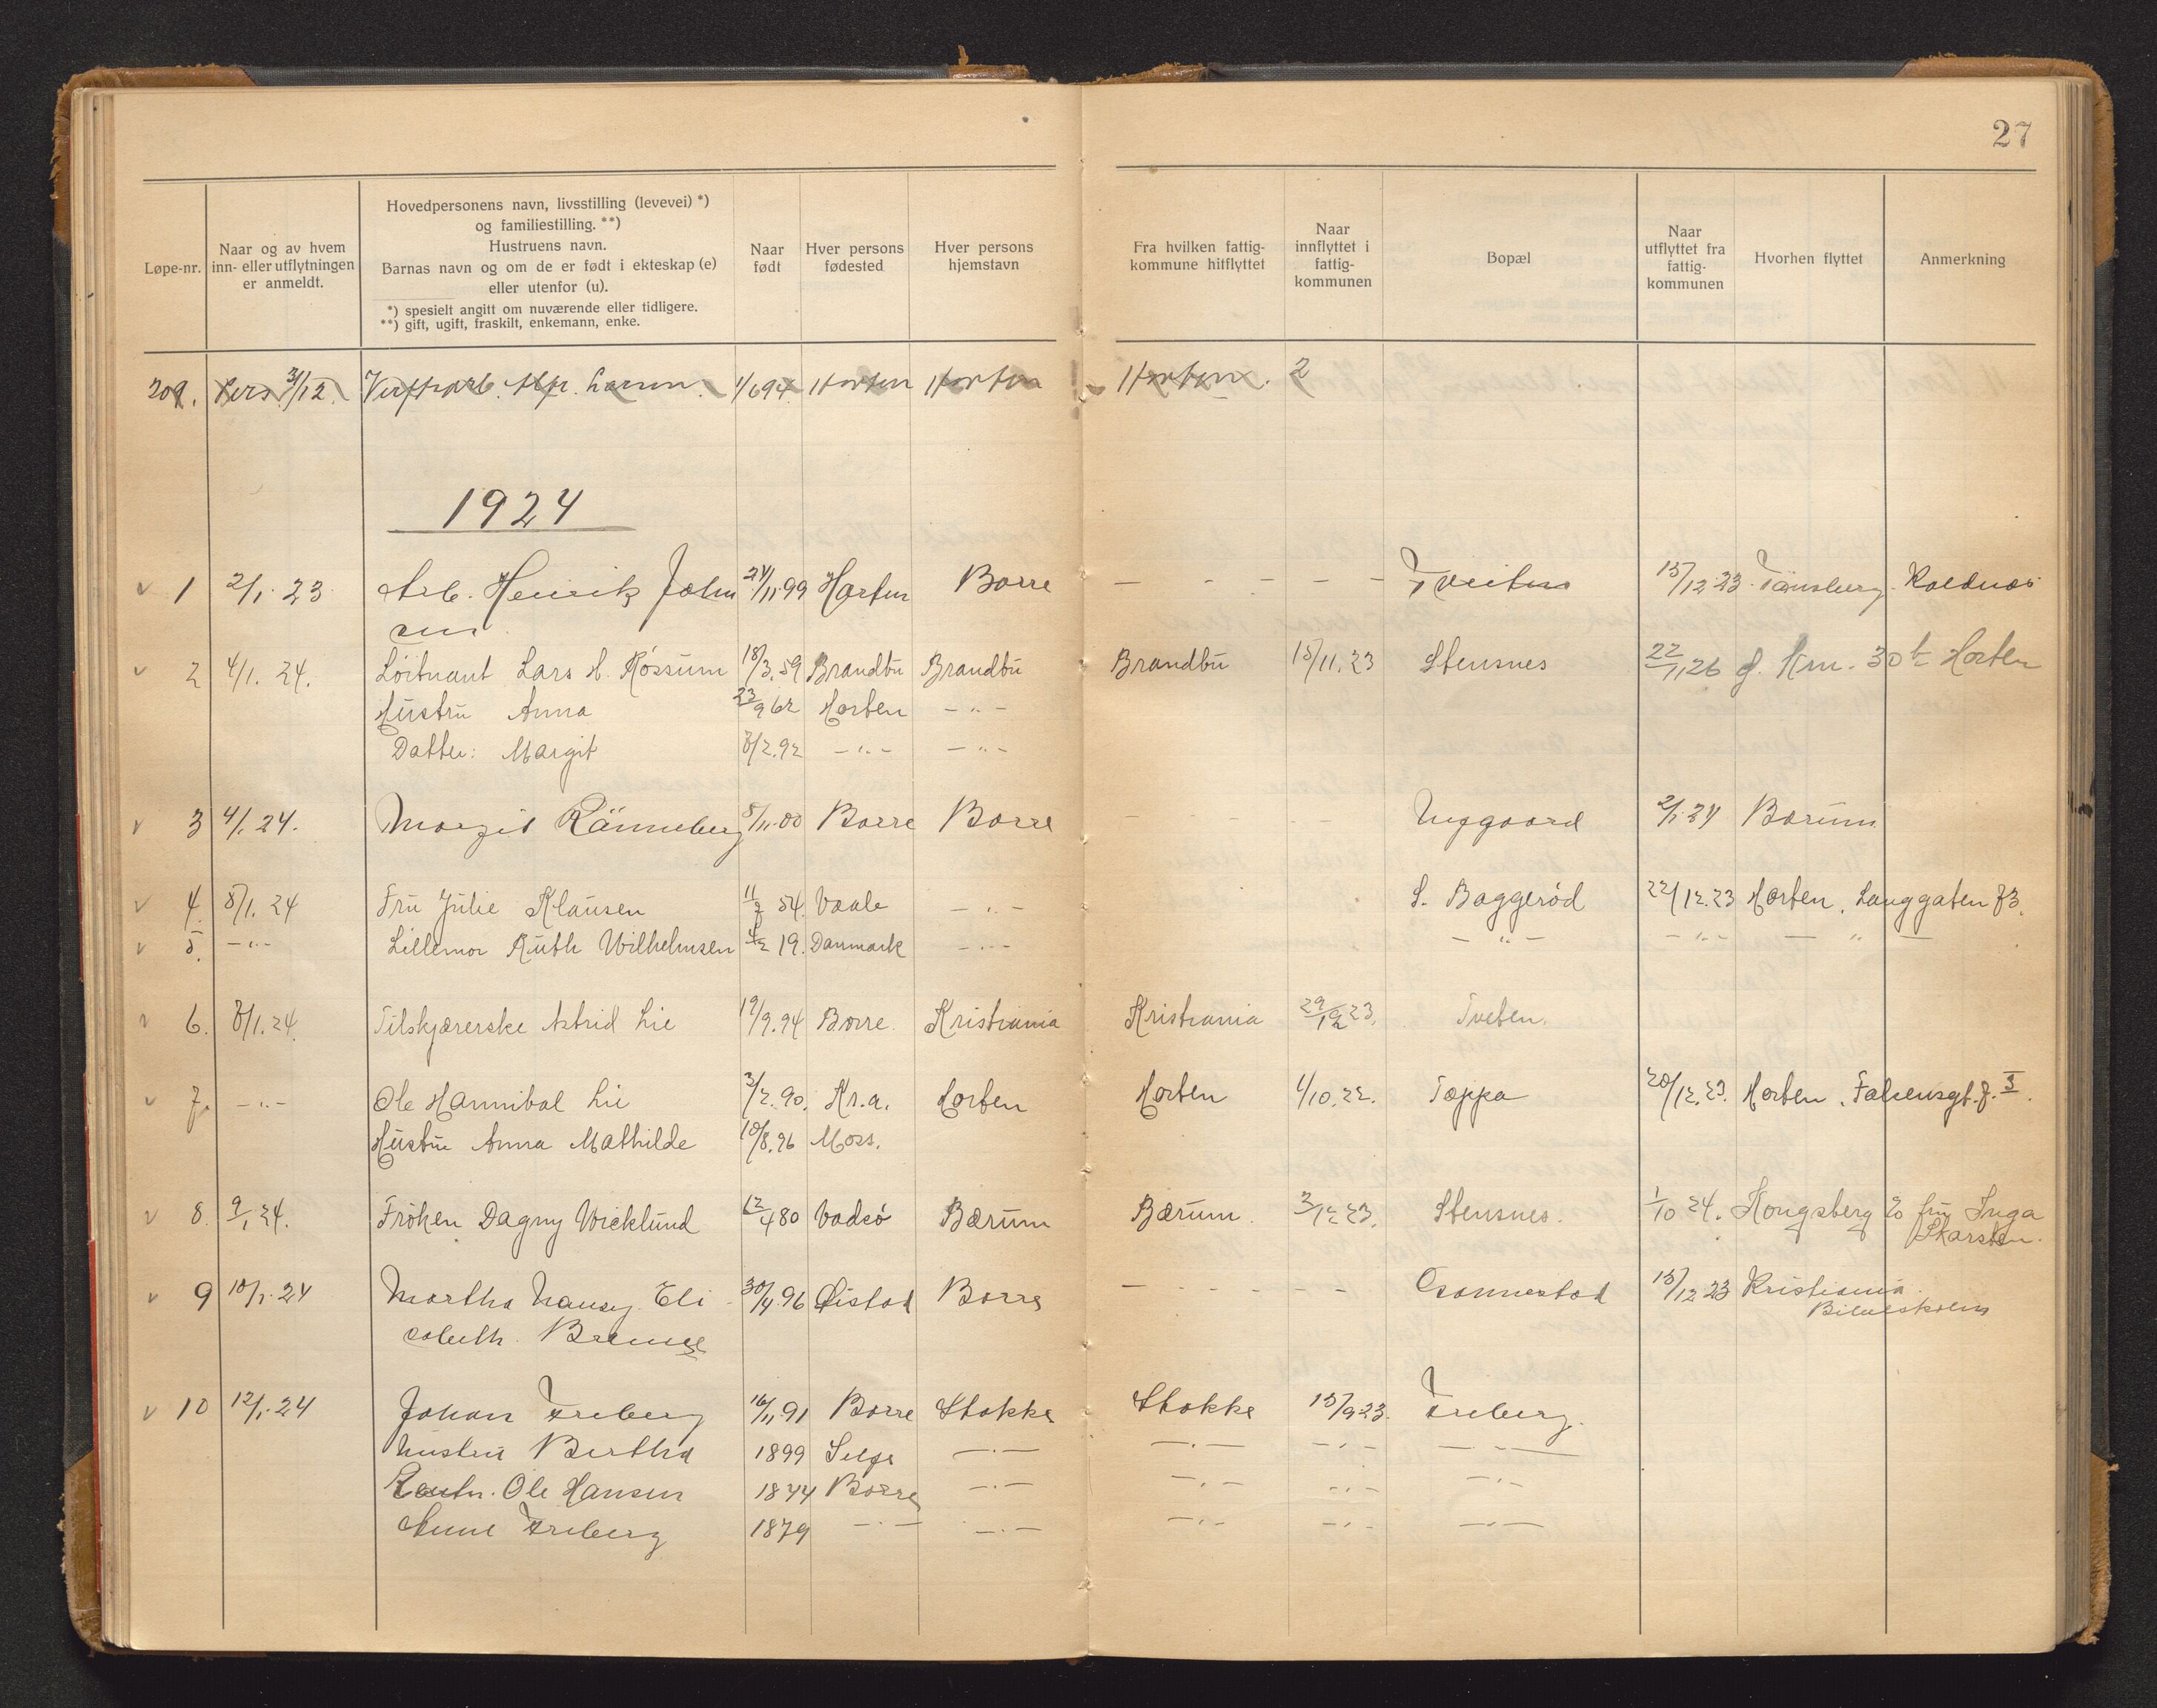 27
Løpe-nr.
Naar og av hvem
inn- eller utflytningen
er anmeldt.
Hovedpersonens navn, livsstilling (levevei) *)
og familiestilling. **)
Hustruens navn.
Barnas navn og om de er født i ekteskap (e)
eller utenfor (u).
*) spesielt angitt om nuværende eller tidligere.
**) gift, ugift, fraskilt, enkemann, enke.
Naar
født
Hver persons
fødested
Hver persons
hjemstavn
Fra hvilken fattig-
kommune hitflyttet
Naar
innflyttet i
fattig-
kommunen
Bopæl
Naar
utflyttet fra
fattig-
kommunen
Hvorhen flyttet
Anmerkning
209. 31/12 1/6 94 Horten Horten Horten. 2
1924
1 2/1. 23 Arb. Henrik John 24/11.99 Horten Borre Tveiten 15/12.23 Tønsberg
sen
2 4/1. 24. Löitnant Lars H. Róssum 18/3.59 Brandbu Brandbu Brandbu 15/11.23 Stensnes 22/1.26 30 Horten
Hustru Anna 23/9 62 Horten -"-
Datter: Margit 7/2.92 -"- -"-
3 4/1. 24. Margit Rånneberg 8/11.00 Borre Borre 2/1. 24 Bærum
4. 8/1. 24 Fru Julie Klausen 54. Vaale -"- S. Baggeród 22/12.23 Horten, Langgaten 73.
5. -"- Lillemor Ruth Wilhelmsen 19. Danmark -"- -"- -"- -"-
6. 8/1.24. Tilskjærerske Astrid Lie 19/9.94 Borre. Kristiania Kristiania 29/12 23. Tveten.
7. -"- Ole Hannibal Lie 3/2.90. Kr.a. Horten Horten 1/10.22. Toppa 20/12.23. Horten, Falsensgt. 7. I
Hustru Anna Mathilde 10/8.96 Moss.
8. 9/1 24. Fróken Dagny Wicklund 12/4 80 Vadsó Bærum Bærum. 3/12 23. Stensnes. 1/10 24. Kongsberg fru Inga
Skarsten.
9 10/1. 24 Martha Nansy Eli- 30/4.96 Øistad Borre 15/12 23 Kristiania.
sabeth. Bremse
10 12/1. 24 Johan Freberg 16/11.91 Borre Stokke Stokke 15/9 23. Freberg.
Hustru Bertha 1899 -"- -"- -"- -"-
Ole Hansen 1844 Borre -"- -"- -"- -"-
Anne Freberg 1879 -"- -"- -"- -"- -"-